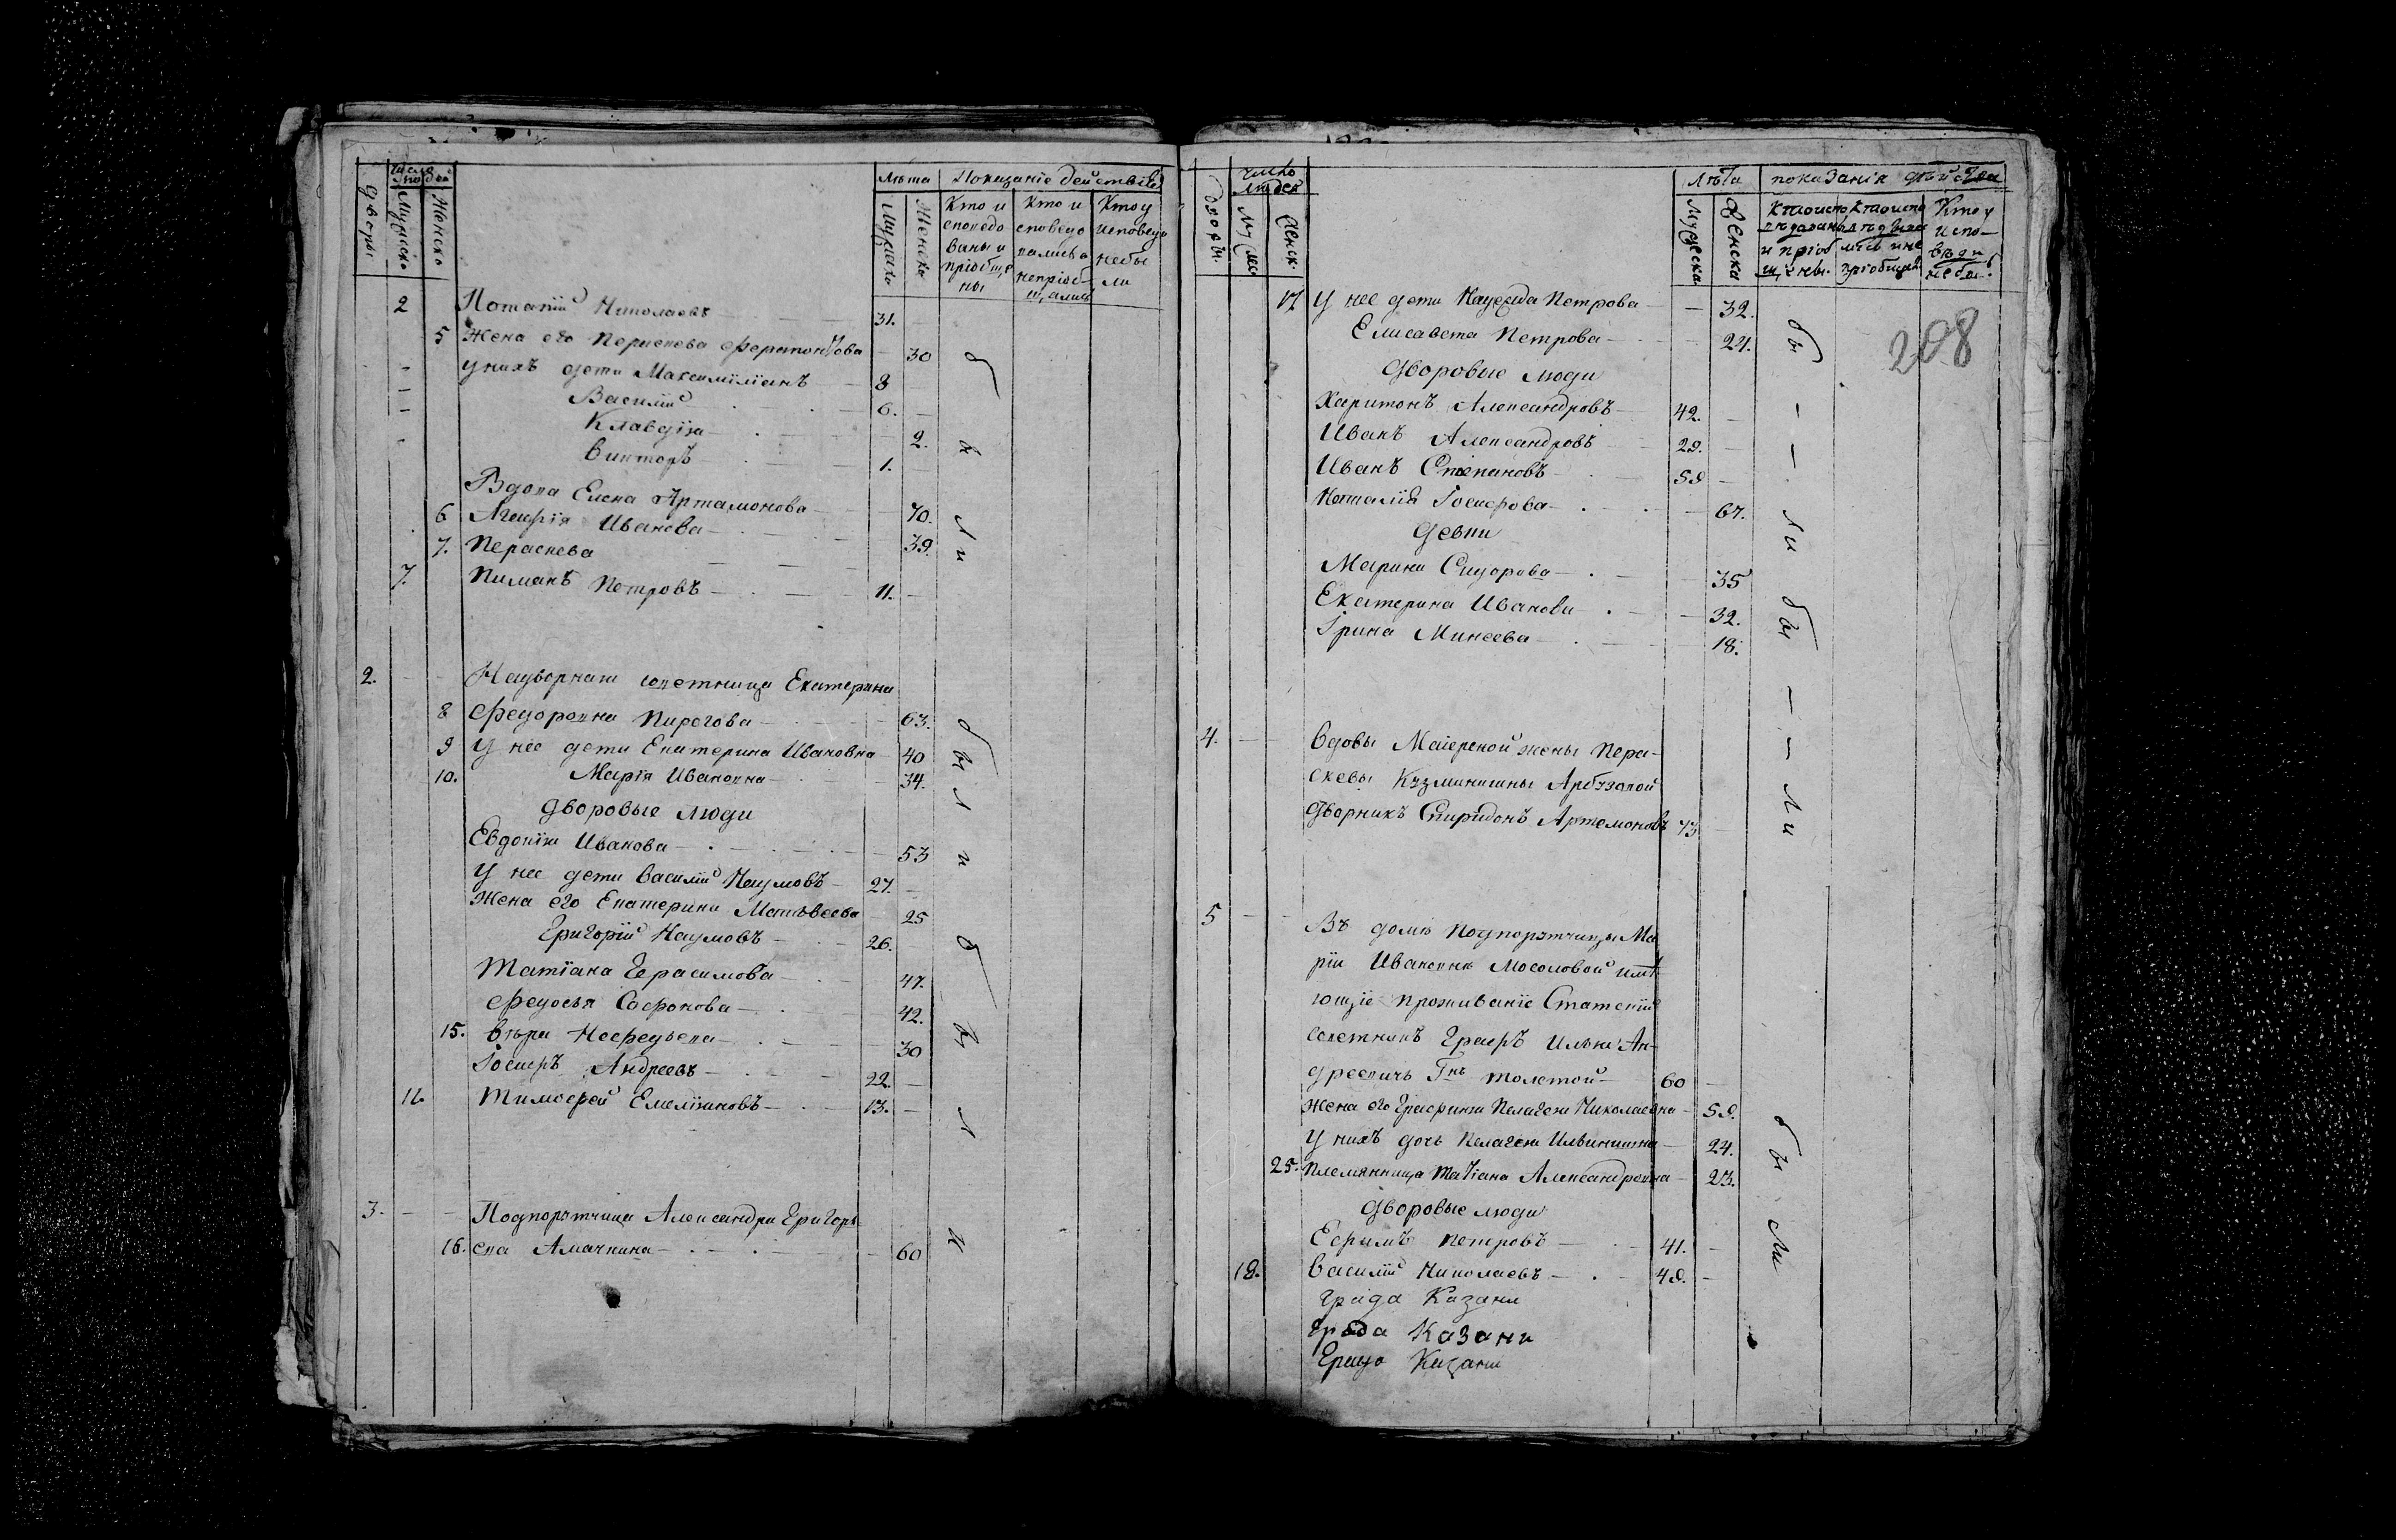 Число людей
Лѣта
Показаніе действія
Дворы
Мужеско
Женско
Мужеско
Женско
Кто исповедованы и пріобщены
Кто исповедовались а непріобщались
Кто у исповеди небыли
2 Потапій Николаевъ 31.
5 Жена его Парескева Ферапонтова 30
у нихъ дети Максимиліанъ 8
Василій 6.
Клавдія 2.
Викторъ 1.
Вдова Елена Артамонова 70.
6 Иванова 39.
7. Парескева
7. Пиманъ Петровъ 11.
2. Надворная советница Екатерина
8 Федоровна Пирогова 63.
9 У нее дети Екатерина Ивановна 40
10. Марія Ивановна 34.
Дворовые люди
Евдокія Иванова 53
У нее дети Василій Наумовъ 27.
Жена его Екатерина Матвѣева 25
Григорій Наумовъ 26.
Татіана Герасимова 47.
Федосья Софонова 42.
15. Вѣра 30
Іосифъ Андреевъ 22.
11. Тимофей Емеліяновъ 13.
3. Подпорутчица Александра Григорь
16. ева Амачкина 60
были
были
число людей
Лѣта
показанія дѣйства
дворы.
Муж
Женск.
Мужеска
Женска
Кто у испо-веди небы.
208
17 У нее дети Надежда Петрова 32.
Елисавета Петрова 24.
Дворовые люди
Харитонъ Александровъ 42.
Иванъ Александровъ 29.
Иванъ Степановъ 59
Наталія Іосифова 67.
Девки
Марина Сидорова 35
Екатерина Иванова 32.
Ірина Минеева 18.
4. Вдовы Маіорской жены Пера-
скевы Кузминишны Арбузовой
Дворникъ Спиридонъ Артемоновъ 73
5 Въ доме Подпорутчицы Ма
ріи Ивановны Мосоловой имѣ
ющіе проживаніе Статскій
советникъ Графъ Илья Ан-
дреевичъ Гнъ толстой 60
Жена его Графиня Пелагея Николаевна 59.
У нихъ дочь Пелагея Ильинишна 24.
25. Племянница Татіана Александровна 23.
Дворовые люди
Ефимъ Петровъ 41.
18. Василій Николаевъ 49.
града Казани
града Казани
Града Казани
были
были
были